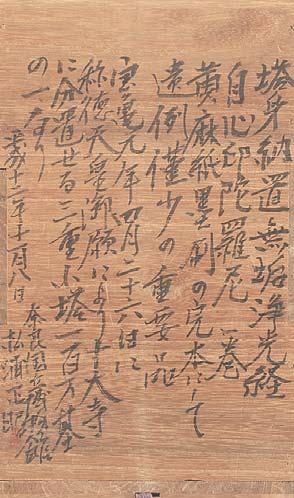 塔身納置無垢浄光経
自心印陀羅尼一巻
黄麻紙墨刷の完本にして
遺例僅少の重要品
宝亀元年四月二十六日に
称徳天皇御願により十大寺
に分置せる三重小塔一百万基
の一なり
平成十二年十一月八日
奈良国立博物館
松浦正昭